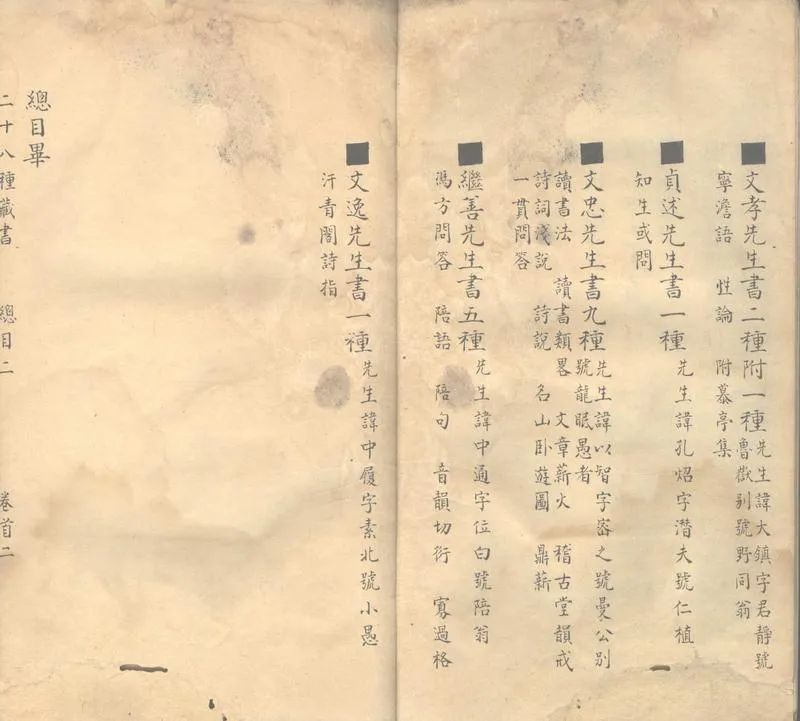 ■文孝先生書二種附一種先生諱大鎮字君靜號
魯嶽别號野同翁
寧澹語 性論 附慕亭集
■貞述先生書一種 先生諱孔炤字潛夫號仁植
知生或問
■文忠先生書九種先生諱以智字密之號曼公别
號龍眠愚者
讀書法 讀書類畧 文章薪火 稽古堂韻戒
詩詞淺說 詩說 名山卧遊圖 鼎薪
一貫問答
■繼善先生書五種先生諱中通字位白號陪翁
馮方問答 陪語 陪句 音韻切衍 寡過格
■文逸先生書一種先生諱中履字素北號小愚
汗青閣詩指
總目畢
二十八種藏書 總目二 卷首二